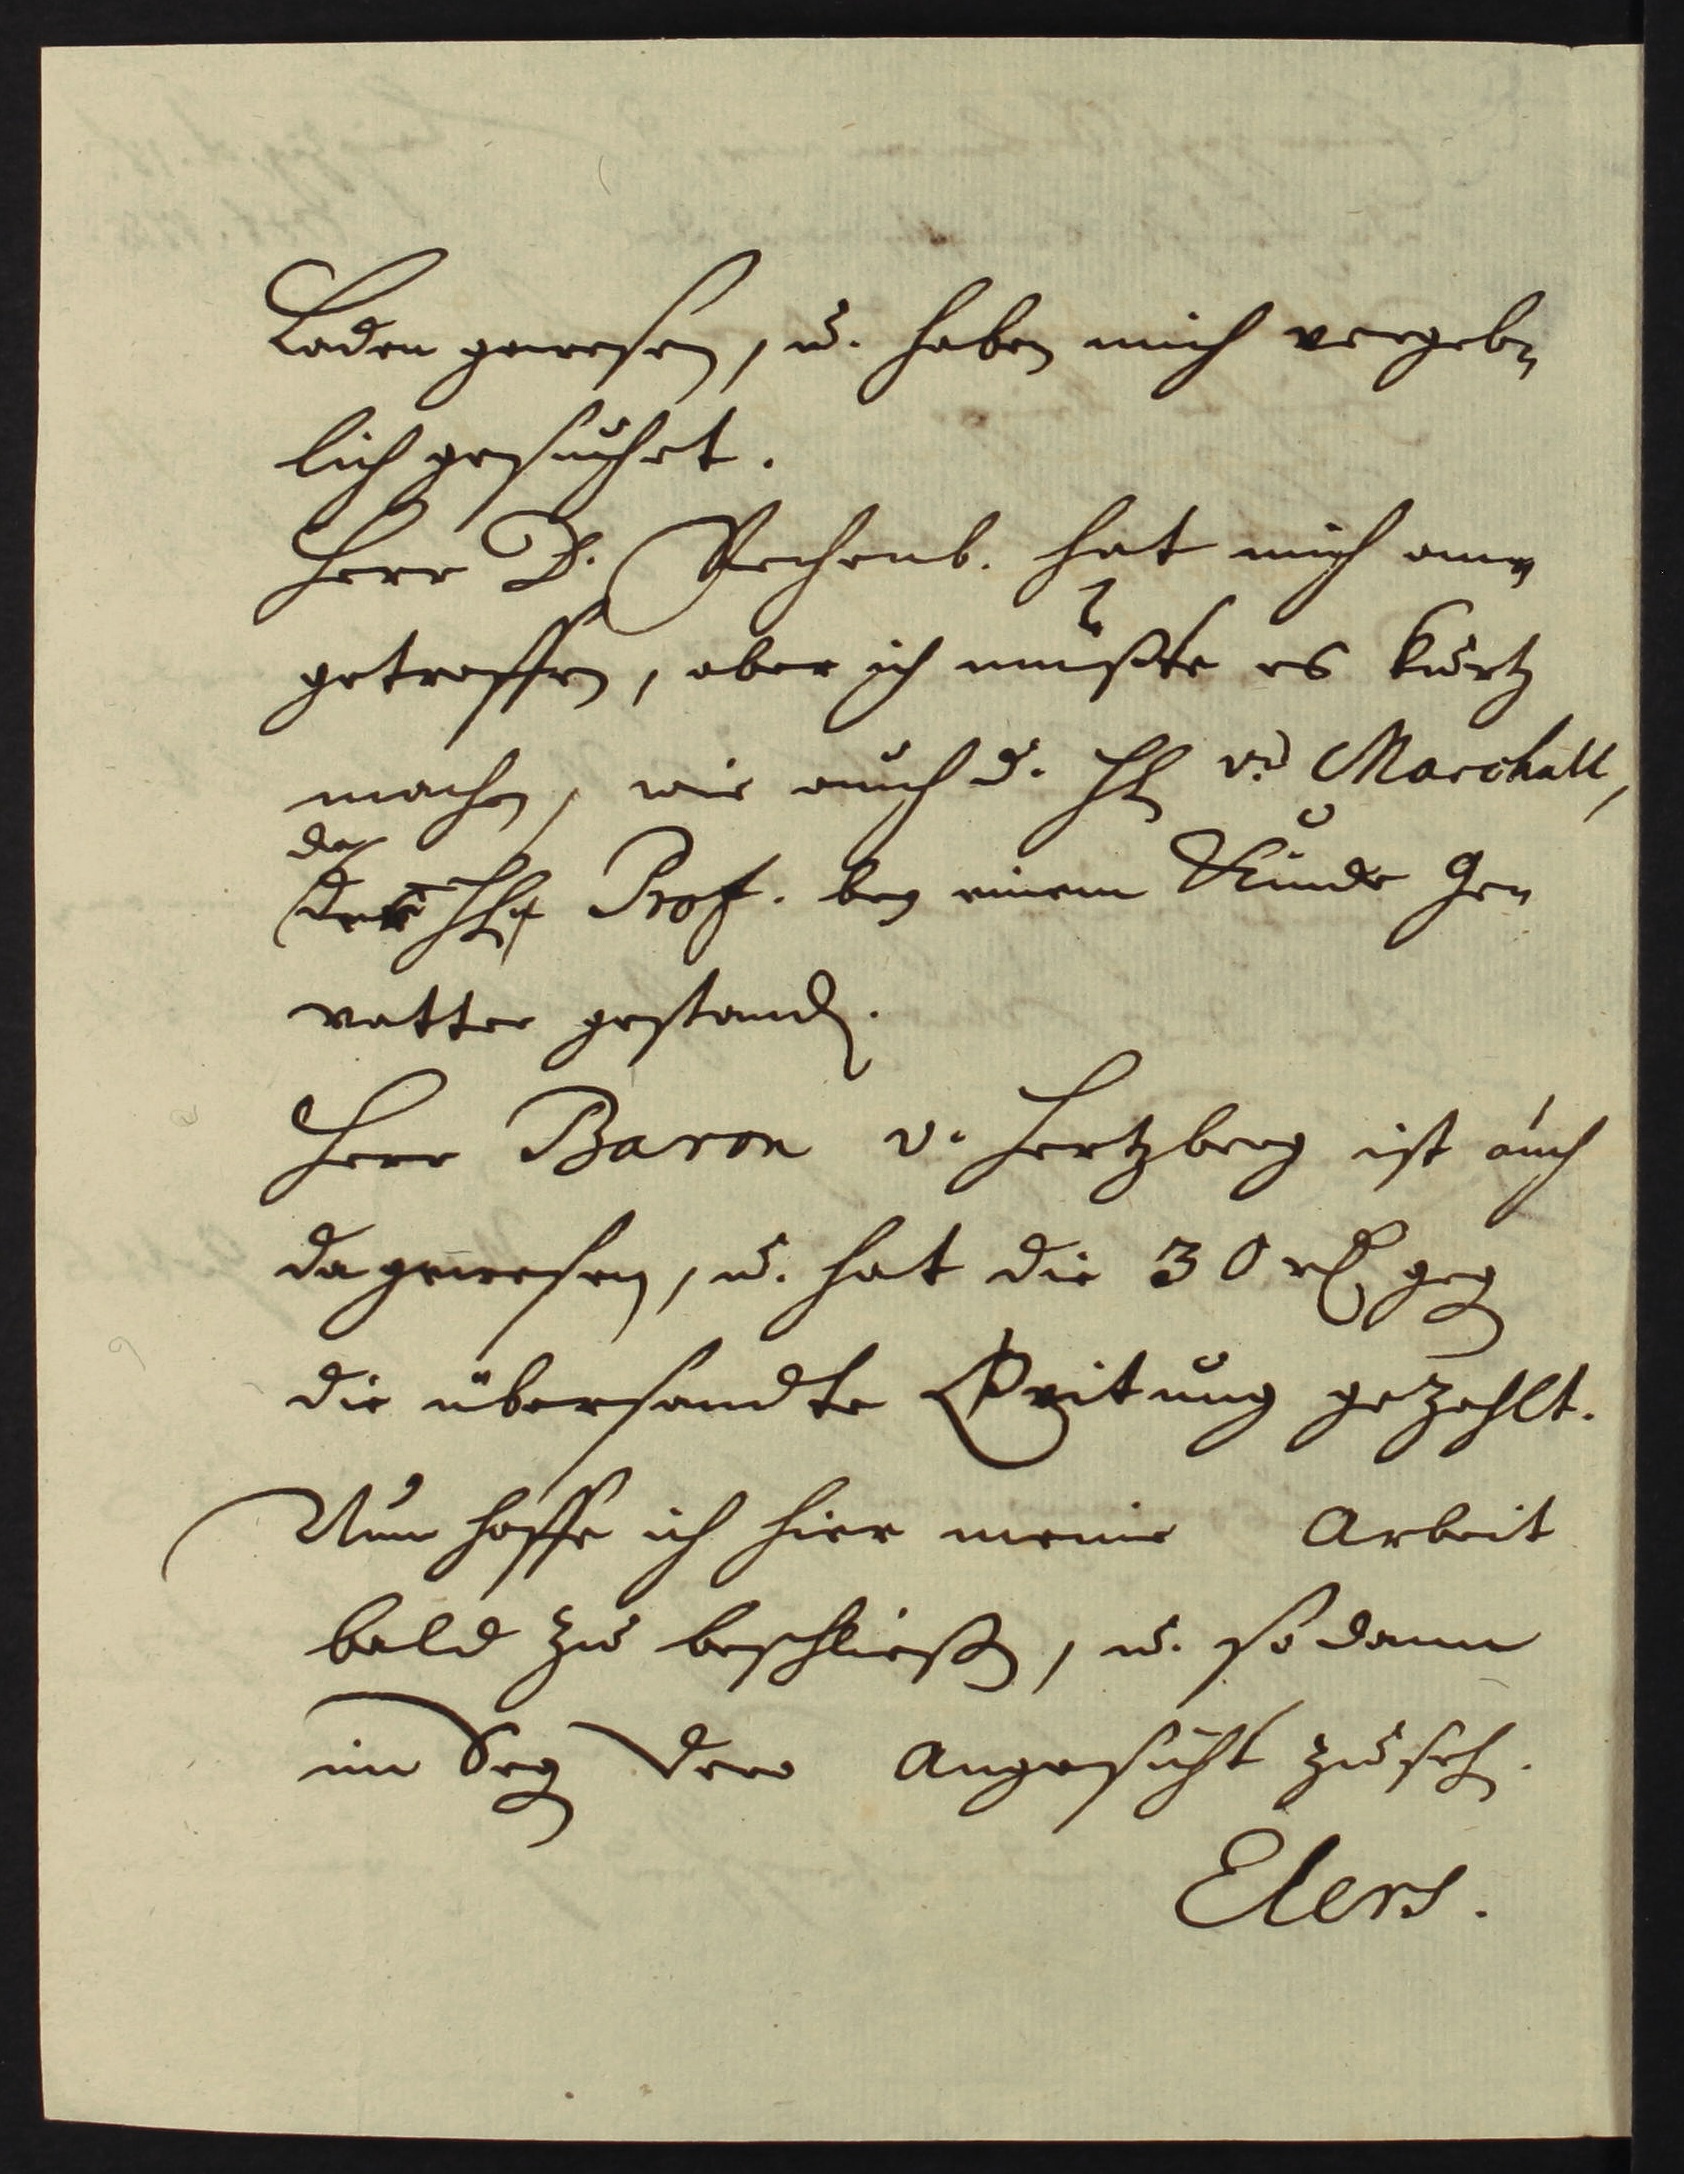 Laden gewesen, u. haben mich vergeb-
lich gesuchet.
Herr D. Rechenb. hat mich an-
getroffen, aber ich mußte es kurtz
machen, wie auch d. H. v. Marchall,
da
der H. Prof. bey einem Kinde Ge-
vatter gestanden.
Herr Baron v. Hertzberg ist auch
da gewesen, u. hat die 30 rl gegen
die übersandte Qvitung gezahlt.
Nun hoffe ich hier meine Arbeit
bald zu beschließen, u. so dann
im Segen Dero Angesicht zu sehen.
Elers.